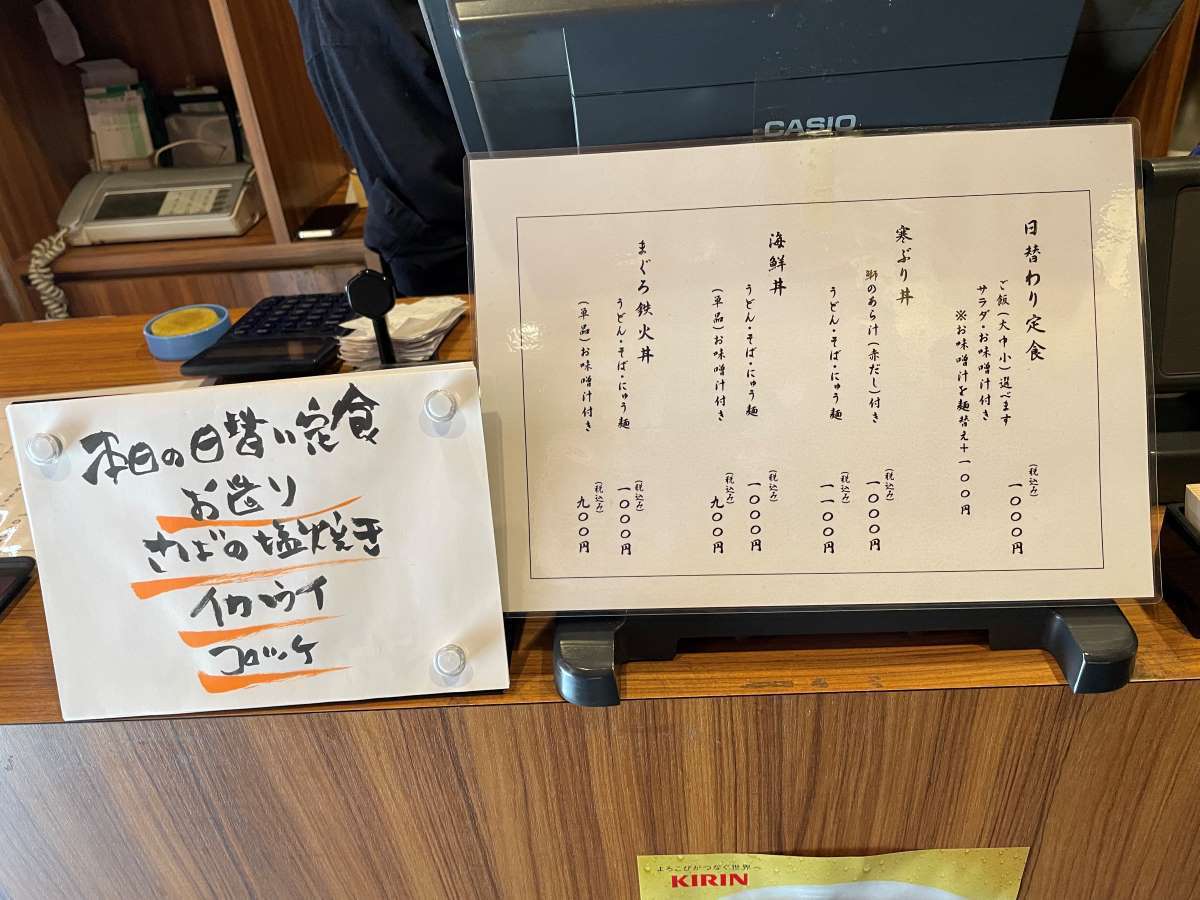 CASIO
日替わり定食
ご飯(大中小)選べます
サラダ・お味噌汁付き
※お味噌汁を麺替え+一〇〇円
(税込み)
一〇〇〇円
寒ぶり丼
鰤のあら汁(赤だし)付き
(税込み)
一〇〇〇円
うどん・そば・にゅう麺
(税込み)
一一〇〇円
海鮮丼
うどん・そば・にゅう麺
(税込み)
一〇〇〇円
(単品)お味噌汁付き
(税込み)
九〇〇円
まぐろ鉄火丼
うどん・そば・にゅう麺
(税込み)
一〇〇〇円
(単品)お味噌汁付き
(税込み)
九〇〇円
本日の日替り定食
お造り
さばの塩焼き
イカフライ
コロッケ
よろこびがつなぐ世界へ
KIRIN